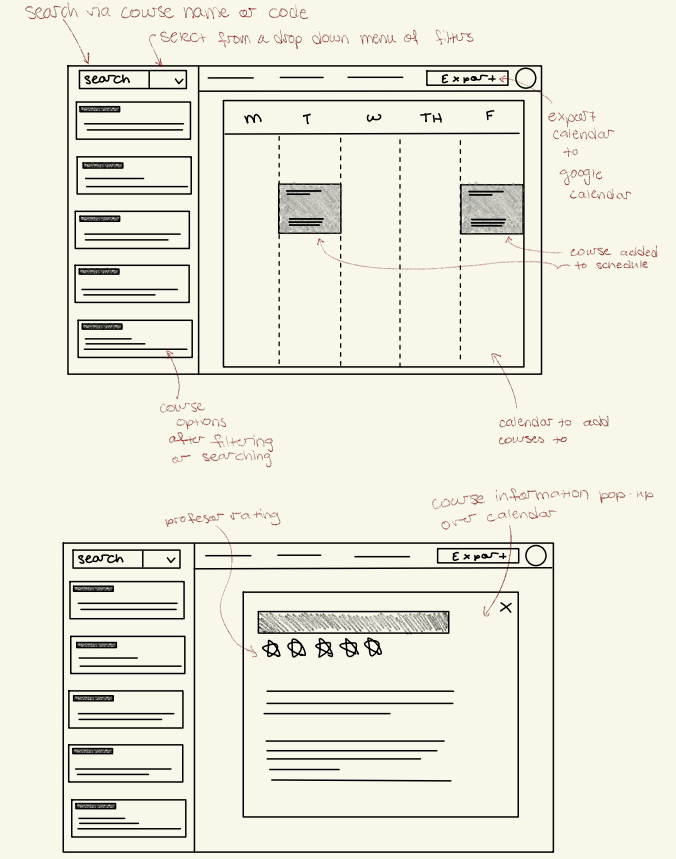 search via course name or code
select from a drop down menu of filters
search
Export
M T W TH F
export
calendar
to
google
calendar
course added
to schedule
course
options
after filtering
or searching
calendar to add
courses to
course information pop-up
over calendar
profesor rating
search
Export
X